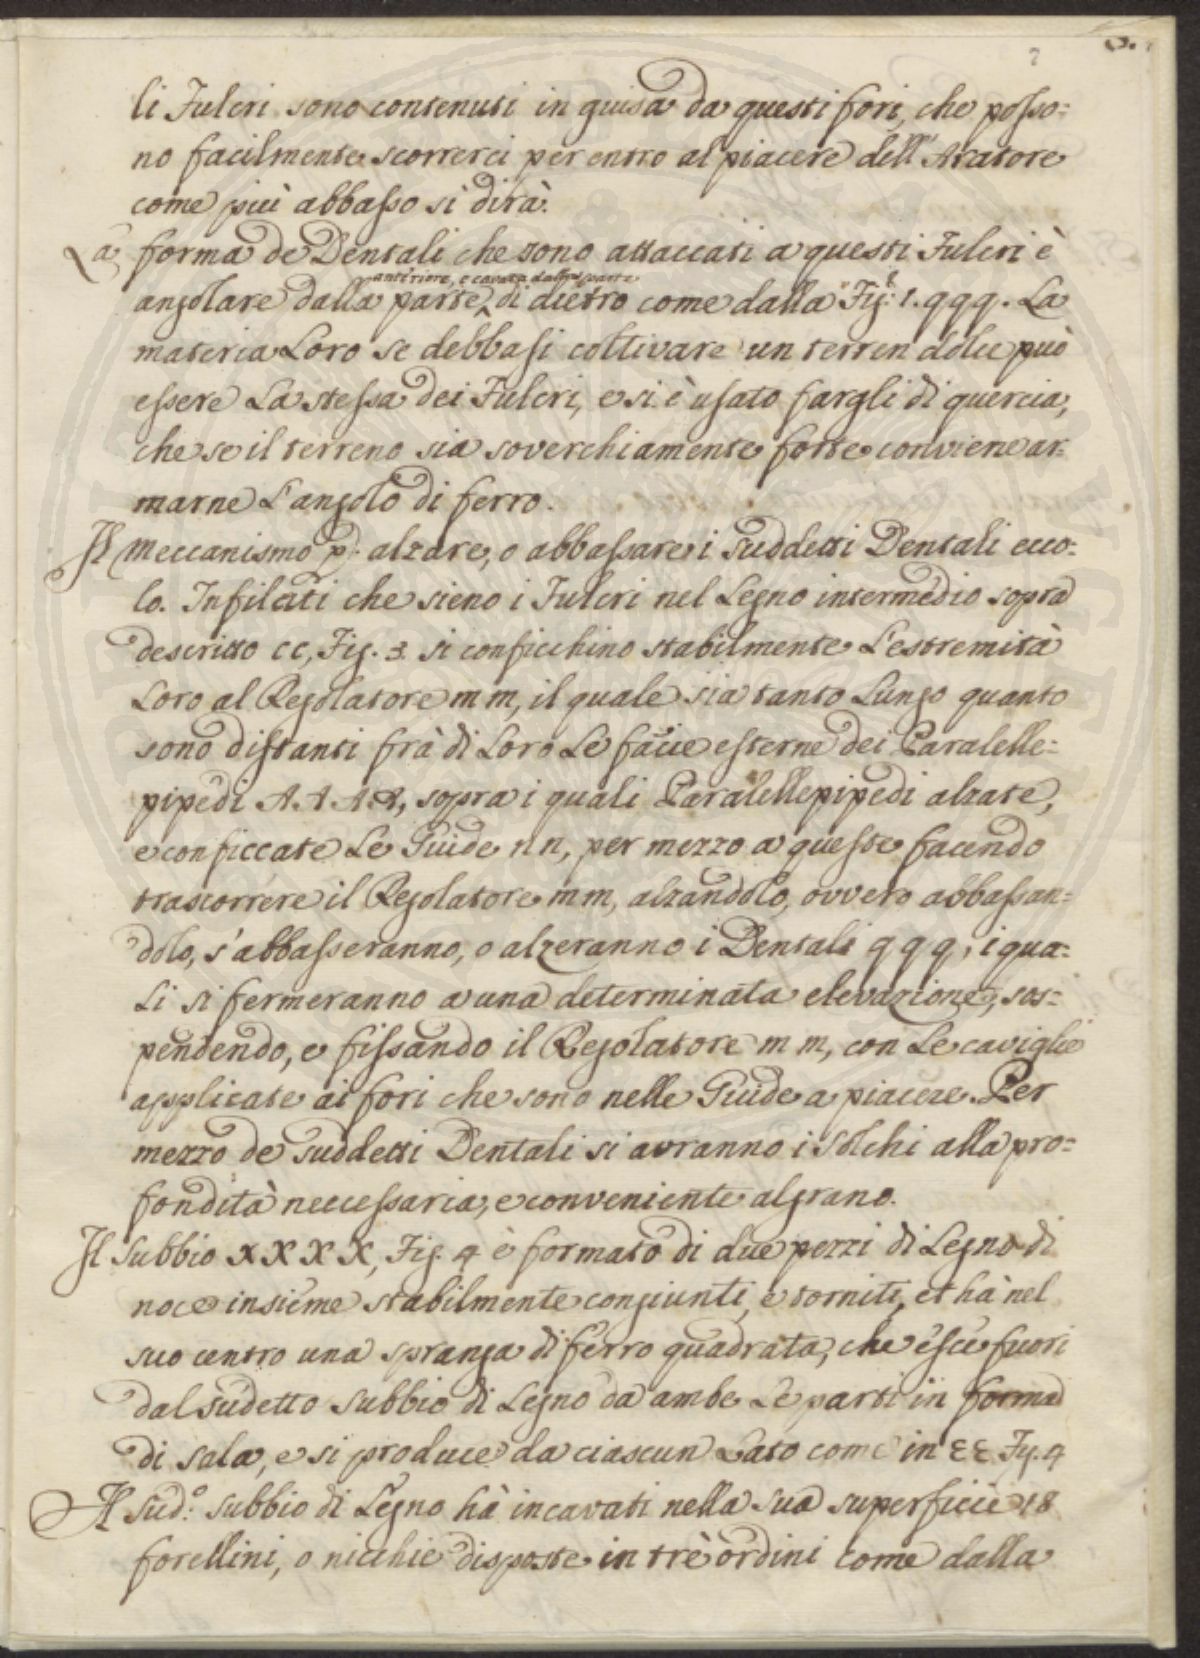 li Fulcri sono contenuti in guisa da questi fori, che posso=
no facilmente scorrerci per entro al piacere dell'Aratore
come più abbasso si dirà.
La forma de Dentali che sono attaccati a questi Fulcri è
anteriore, e cavata dalla parte
angolare dalla parte di dietro come dalla Fig: 1. qqq. La
materia Loro se debbasi coltivare un terren dolce può
essere La stessa dei Fulcri, e si è usato fargli di quercia,
che se il terreno sia soverchiamente forte conviene ar=
marne L'angolo di ferro.
Il Meccanismo p: alzare, o abbassare i Suddetti Dentali ecco=
lo. Infilati che sieno i Fulcri nel Legno intermedio sopra
descritto CC, Fig. 3. si conficchino stabilmente L'estremità
Loro al Regolatore mm, il quale sia tanto Lungo quanto
sono distanti frà di Loro Le facie esterne dei Paralelle=
pipedi A A A A, sopra i quali Paralellepipedi alzate,
e conficcate Le Guide nn, per mezzo a queste facendo
trascorrere il Regolatore mm, alzandolo, ovvero abbassan=
dolo, s'abbasseranno, o alzeranno i Dentali qqq; i qua=
Li si fermeranno a una determinata elevazione, sos=
pendendo, e fissando il Regolatore m m, con Le caviglie
applicate ai fori che sono nelle Guide a piacere. Per
mezzo de Suddetti Dentali si avranno i Solchi alla pro=
fondità neccessaria, e conveniente al grano.
Il Subbio X X X X, Fig. 4 è formato di due pezzi di Legno di
noce insieme stabilmente congiunti, e torniti, et hà nel
suo centro una spranga di ferro quadrata, che esce fuori
dal Sudetto Subbio di Legno da ambe Le parti in forma
di sala, e si produce da ciascun Lato come in ƐƐ Fig. 4
Il Sud:o Subbio di Legno hà incavati nella Sua superficie 18
forellini, o nicchie disposte in trè ordini come dalla